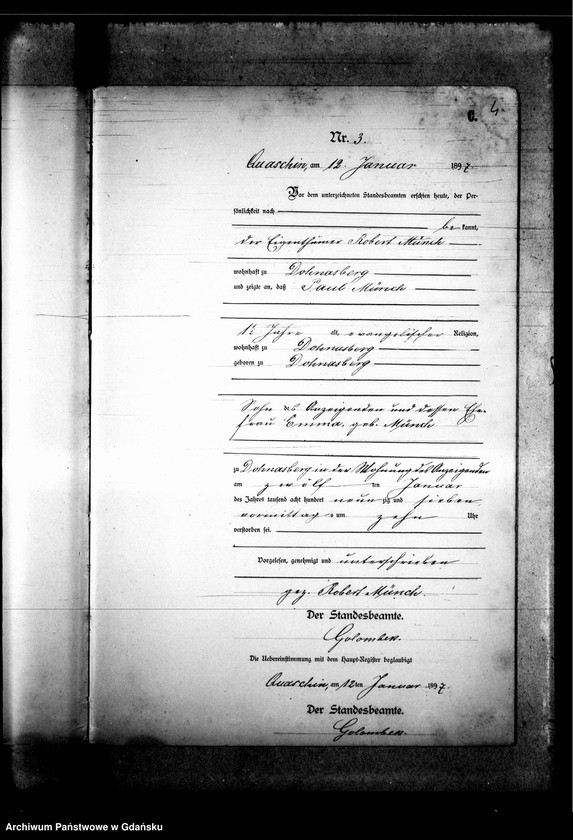 C. 4.
Nr. 3.
Quaschin, am 12. Januar 1897.
Vor dem unterzeichneten Standesbeamten erschien heute, der Per-
sönlichkeit nach
be kannt,
der Eigenthümer Robert Münch
wohnhaft zu Dohnasberg
und zeigte an, daß Paul Münch
1½ Jahre alt, evangelischer Religion,
wohnhaft zu Dohnasberg
geboren zu Dohnasberg
Sohn des Anzeigenden und dessen Ehe-
frau Emma, geb. Münch
zu Dohnasberg in der Wohnung des Anzeigenden
am zwölf ten Januar
des Jahres tausend acht hundert neun zig und sieben
vormittags um zehn Uhr
verstorben sei.
Vorgelesen, genehmigt und unterschrieben
gez. Robert Münch.
Der Standesbeamte.
Golombek.
Die Uebereinstimmung mit dem Haupt-Register beglaubigt
Quaschin, am 12ten Januar 1897.
Der Standesbeamte.
Golombek.
Archiwum Państwowe w Gdańsku